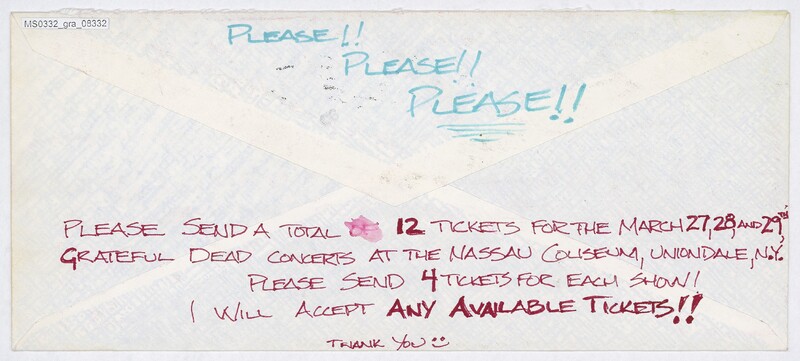 MS0332_gra_08332
PLEASE!!
PLEASE!!
PLEASE!!
PLEASE SEND A TOTAL OF 12 TICKETS FOR THE MARCH 27, 28, AND 29TH
GRATEFUL DEAD CONCERTS AT THE NASSAU COLISEUM, UNIONDALE, N.Y.
PLEASE SEND 4 TICKETS FOR EACH SHOW!
I WILL ACCEPT ANY AVAILABLE TICKETS!!
THANK YOU